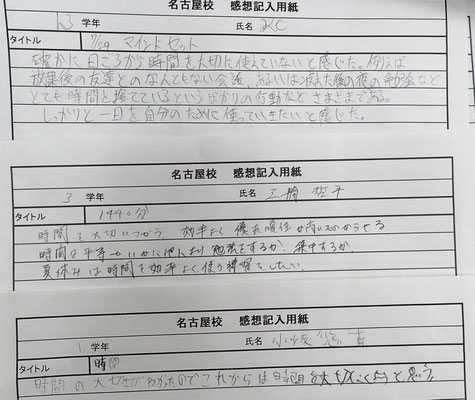 名古屋校 感想記入用紙
h3 学年 氏名 KC
タイトル 7/29 マインドセット
確かに日ごろから時間を大切に使えていないと感じた。例えば
放課後の友達とのなんでもない会話、あるいは疲れた後の夜の勉強など
とても時間を捨てているというばかりの行動などさまざまである。
しっかりと一日を自分のために使っていきたいと感じた。
名古屋校 感想記入用紙
3 学年 氏名
タイトル 1440分
時間を大切につかう 効率よく優先順位が高いものからやる
時間は平等→いかに他人より勉強をするか、集中するか
夏休みは時間を効率よく使う練習をしたい
名古屋校 感想記入用紙
1 学年 氏名 小坂
タイトル 時間
時間の大切さがわかったのでこれからは時間を大切にしようと思う。